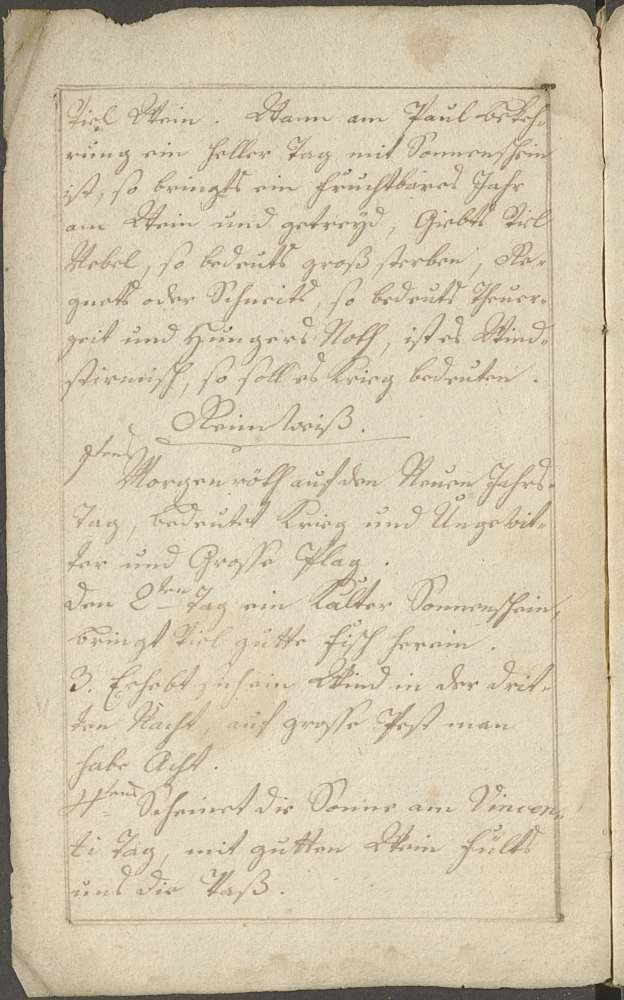 Viel Wein. Wann am Paul bekeh-
rung ein heller Tag mit Sonnenschein
ist, so bringts ein fruchtbares Jahr
am Wein und getreyd, Giebts Viel
Nebel, so bedeuts groß sterben, Re-
gnets oder Schneits, so bedeuts Theuer-
zeit und Hungers Noth, ist es Wind-
stirmisch, so soll es Krieg bedeuten.
Reimweiß.
Morgenröth auf den Neuen Jahrs-
Tag, bedeutet Krieg und Ungewit-
ter und Grosse Plag.
den 2ten Tag ein Kalter Sonnenschein,
bringt Viel gutte fisch herein.
3. Erhebt sich ein Wind in der drit-
ten Nacht, auf grosse Pest man
habe Acht.
4tens Scheinet die Sonne am Vincen-
ti Tag, mit gutten Wein fults
uns die Vaß.